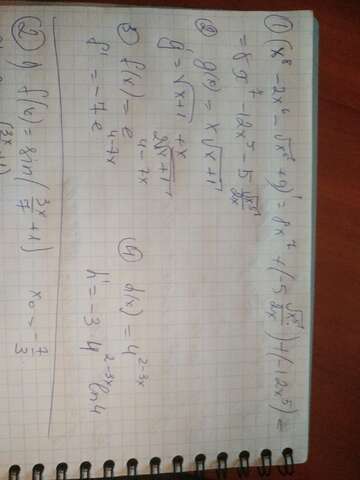 ① (x⁸ - 2x⁶ - √x⁵ + 9)' = 8x⁷ + (-5 √x⁵/2x) + (-12x⁵) =
= 8x⁷ - 12x⁵ - 5 √x⁵/2x
② g(x) = x√x+1
g' = √x+1 + x/2√x+1
③ f(x) = e^4-7x
f' = -7e^4-7x
④ h(x) = 4^2-3x
h' = -3·4^2-3x ln4
② f(x) = sin(3x/7 + 1) x₀ = -7/3